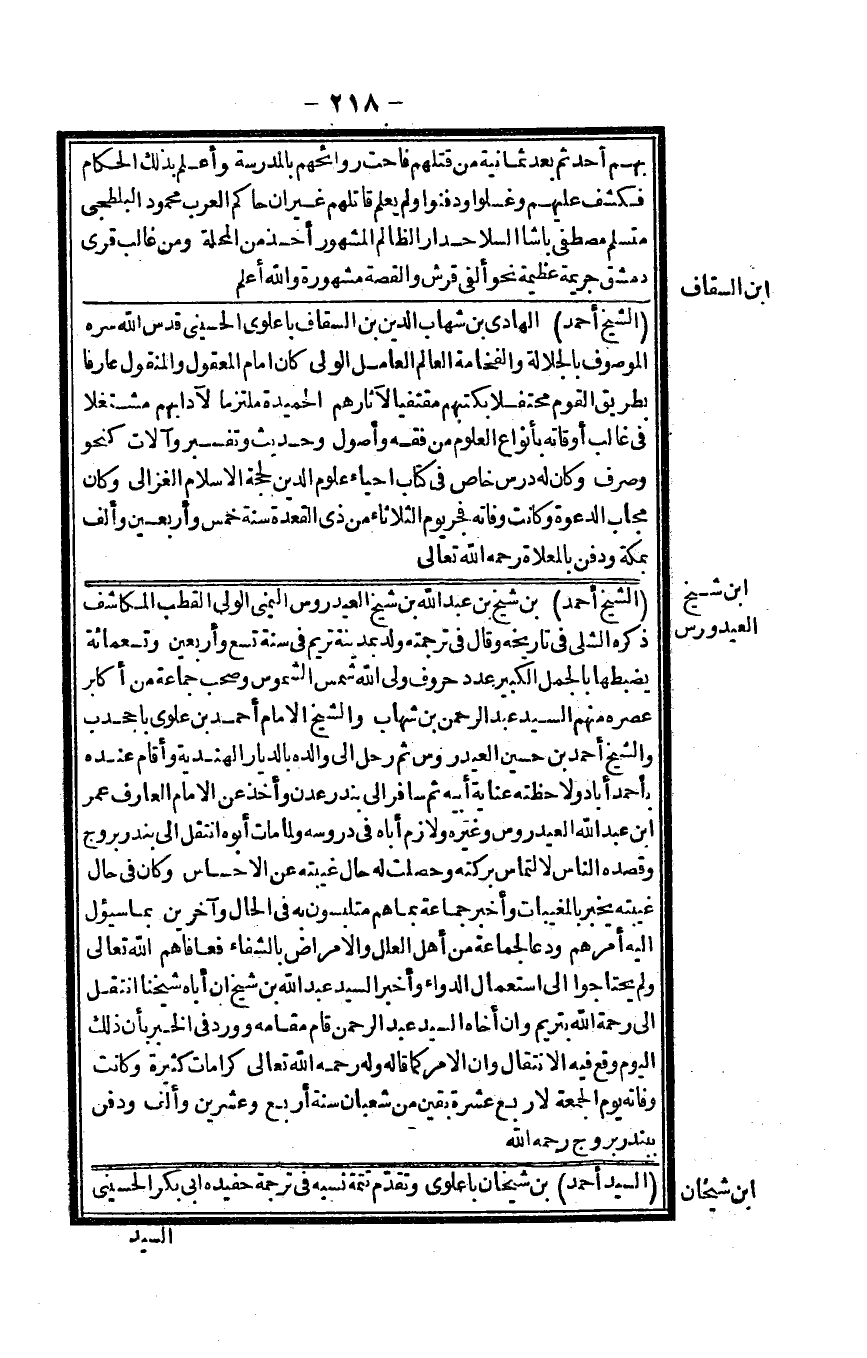 - ٢١٨ -
بهم أحد ثم بعد ثمانية من قتلهم فاحت روائحهم بالمدرسة وأعلم بذلك الحكام
فكشف عليهم وغسلوا ودفنوا ولم يعلم قاتلهم غير ان حاكم العرب محمود البلطجى
متسلم مصطفى باشا السلاحدار الظالم المشهور أخذ من المحلة ومن غالب قرى
دمشق جريمة عظيمة نحو ألفى قرش والقصة مشهورة والله أعلم
ابن السقاف
(الشيخ أحمد) الهادى بن شهاب الدين بن السقاف باعلوى الحسينى قدس الله سره
الموصوف بالجلالة والفخامة العالم العامل الولى كان امام المعقول والمنقول عارفا
بطريق القوم محتفلا بكتبهم مقتفيا لآثارهم الحميدة ملتزما لآدابهم مشتغلا
فى غالب أوقاته بأنواع العلوم من فقه وأصول وحديث وتفسير وآلات كنحو
وصرف وكان له درس خاص فى كتاب احياء علوم الدين لحجة الاسلام الغزالى وكان
مجاب الدعوة وكانت وفاته فجر يوم الثلاثاء من ذى القعدة سنة خمس وأربعين وألف
بمكة ودفن بالمعلاة رحمه الله تعالى
ابن شيخ
العيدورس
(الشيخ أحمد) بن شيخ بن عبد الله بن شيخ العيدروس اليمنى الولى القطب المكاشف
ذكره الشلى فى تاريخه وقال فى ترجمته ولد بمدينة تريم فى سنة تسع وأربعين وتسعمائة
يضبطها بالجمل الكبير عدد حروف ولى الله شمس الشموس وصحب جماعة من أكابر
عصره منهم السيد عبد الرحمن بن شهاب والشيخ الامام أحمد بن علوى باجحدب
والشيخ أحمد بن حسين العيدروس ثم رحل الى والده بالديار الهندية وأقام عنده
بأحمد أباد ولاحظته عناية أبيه ثم سافر الى بندر عدن وأخذ عن الامام العارف عمر
ابن عبد الله العيدروس وغيره ولازم أباه فى دروسه ولما مات أبوه انتقل الى بندر بروج
وقصده الناس لالتماس بركته وحصلت له حال غيبته عن الاحساس وكان فى حال
غيبته يخبر بالمغيبات وأخبر جماعة بماهم متلبسون به فى الحال وآخرين بماسيؤل
اليه أمرهم ودعا لجماعة من أهل العلل والامراض بالشفاء فعافاهم الله تعالى
ولم يحتاجوا الى استعمال الدواء وأخبر السيد عبد الله بن شيخ ان أباه شيخنا انتقل
الى رحمة الله بتريم وان أخاه السيد عبد الرحمن قام مقامه وورد فى الخبر بأن ذلك
اليوم وقع فيه الانتقال وان الامر كما قاله وله رحمه الله تعالى كرامات كثيرة وكانت
وفاته يوم الجمعة لاربع عشرة بقين من شعبان سنة أربع وعشرين وألف ودفن
ببندر بروج رحمه الله
ابن شيخان
(السيد أحمد) بن شيخان باعلوى وتقدم تتمة نسبه فى ترجمة حفيده ابى بكر الحسينى
السيد